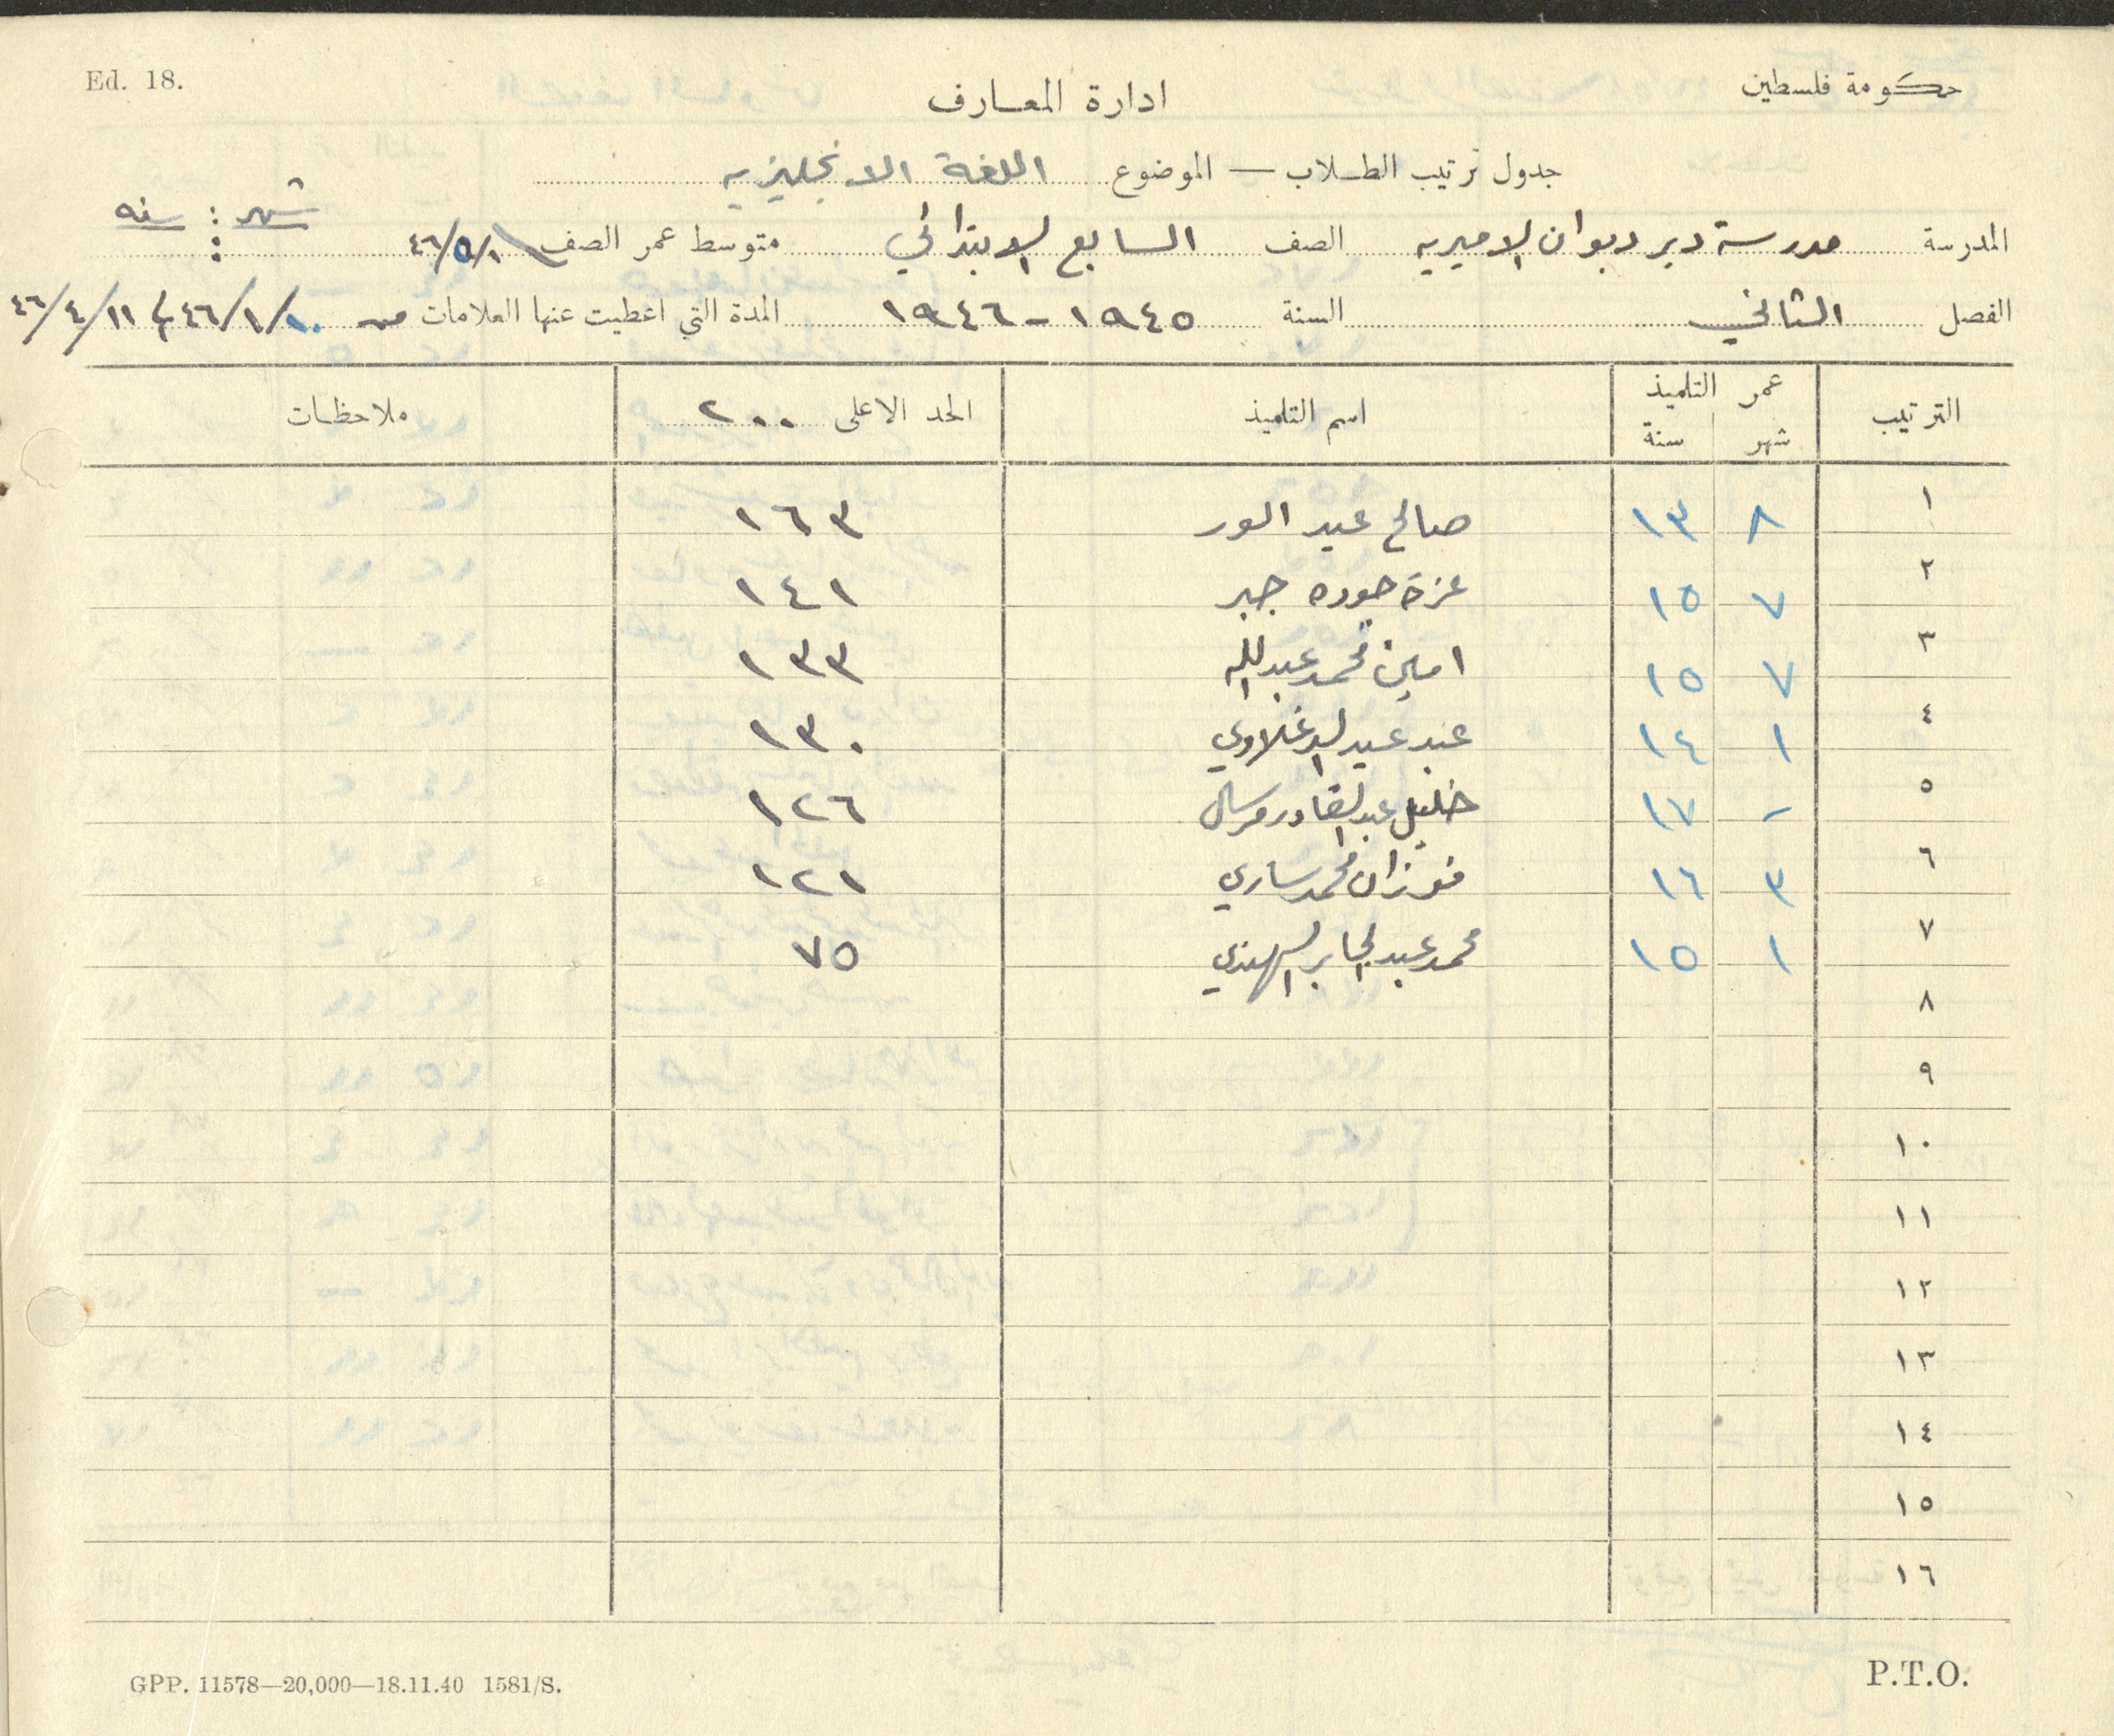 Ed. 18.
حكومة فلسطين
ادارة المعارف
جدول ترتيب الطلاب — الموضوع اللغة الانجليزيه
شهر : سنه
المدرسة مدرسة دير ديوان الاميريه الصف السابع الابتدائي متوسط عمر الصف ١/٥/٤٦ :
الفصل الثاني السنة ١٩٤٥ - ١٩٤٦ المدة التي اعطيت عنها العلامات من ١٠/١/٤٦ الى ١١/٤/٤٦
الترتيب عمر التلميذ اسم التلميذ الحد الاعلى ٢٠٠ ملاحظات
شهر سنة
١ ٨ ١٣ صالح عيد الور ١٦٣
٢ ٧ ١٥ عزة جوده جبر ١٤١
٣ ٧ ١٥ امين محمد عبدالله ١٣٣
٤ ١ ١٤ عبد عيد الزغلاوي ١٣٠
٥ - ١٧ خليل عبدالقادر مرسال ١٢٦
٦ ٣ ١٦ فوزان محمد ساري ١٢١
٧ ١ ١٥ محمد عبد الجابر الهندي ٧٥
٨
٩
١٠
١١
١٢
١٣
١٤
١٥
١٦
GPP. 11578—20,000—18.11.40 1581/S.
P.T.O.